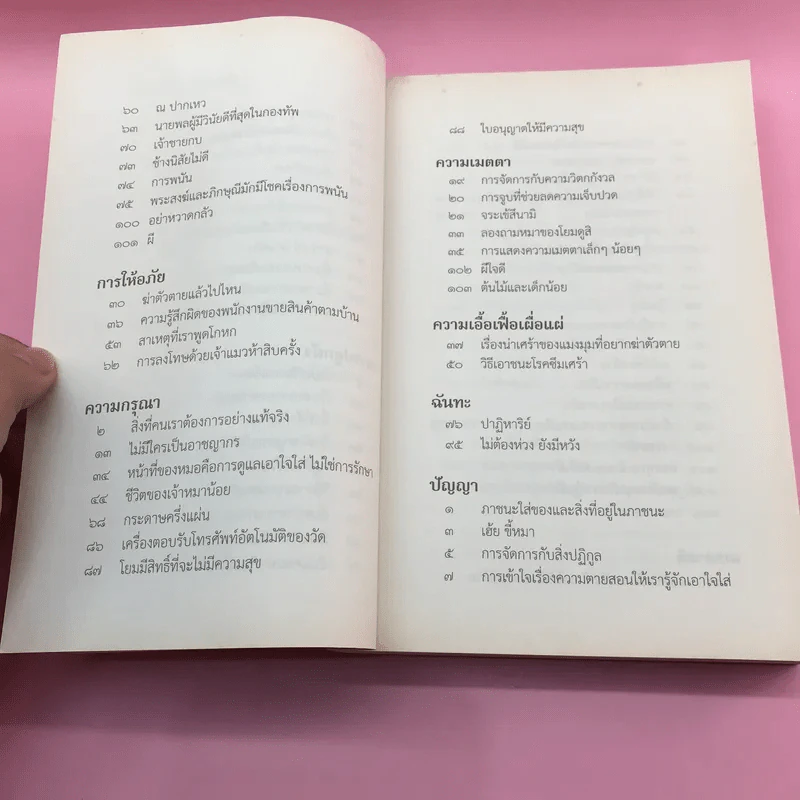 ๖๐ ณ ปากเหว
๖๓ นายพลผู้มีวินัยดีที่สุดในกองทัพ
๗๐ เจ้าชายกบ
๗๓ ช้างนิสัยไม่ดี
๗๔ การพนัน
๗๕ พระสงฆ์และภิกษุณีมักมีโชคเรื่องการพนัน
๑๐๐ อย่าหวาดกลัว
๑๐๑ ผี
การให้อภัย
๓๐ ฆ่าตัวตายแล้วไปไหน
๓๖ ความรู้สึกผิดของพนักงานขายสินค้าตามบ้าน
๕๓ สาเหตุที่เราพูดโกหก
๖๒ การลงโทษด้วยเจ้าแมวห้าสิบครั้ง
ความกรุณา
๒ สิ่งที่คนเราต้องการอย่างแท้จริง
๑๓ ไม่มีใครเป็นอาชญากร
๓๔ หน้าที่ของหมอคือการดูแลเอาใจใส่ ไม่ใช่การรักษา
๔๔ ชีวิตของเจ้าหมาน้อย
๖๘ กระดาษครึ่งแผ่น
๘๖ เครื่องตอบรับโทรศัพท์อัตโนมัติของวัด
๘๗ โยมมีสิทธิ์ที่จะไม่มีความสุข
๘๘ ใบอนุญาตให้มีความสุข
ความเมตตา
๑๙ การจัดการกับความวิตกกังวล
๒๐ การจูบที่ช่วยลดความเจ็บปวด
๒๑ จระเข้สึนามิ
๓๓ ลองถามหมาของโยมดูสิ
๓๕ การแสดงความเมตตาเล็กๆ น้อยๆ
๑๐๒ ผีใจดี
๑๐๓ ต้นไม้และเด็กน้อย
ความเอื้อเฟื้อเผื่อแผ่
๓๗ เรื่องน่าเศร้าของแมงมุมที่อยากฆ่าตัวตาย
๕๐ วิธีเอาชนะโรคซึมเศร้า
ฉันทะ
๗๖ ปาฏิหาริย์
๙๕ ไม่ต้องห่วง ยังมีหวัง
ปัญญา
๑ ภาชนะใส่ของและสิ่งที่อยู่ในภาชนะ
๓ เฮ้ย ขี้หมา
๕ การจัดการกับสิ่งปฏิกูล
๗ การเข้าใจเรื่องความตายสอนให้เรารู้จักเอาใจใส่